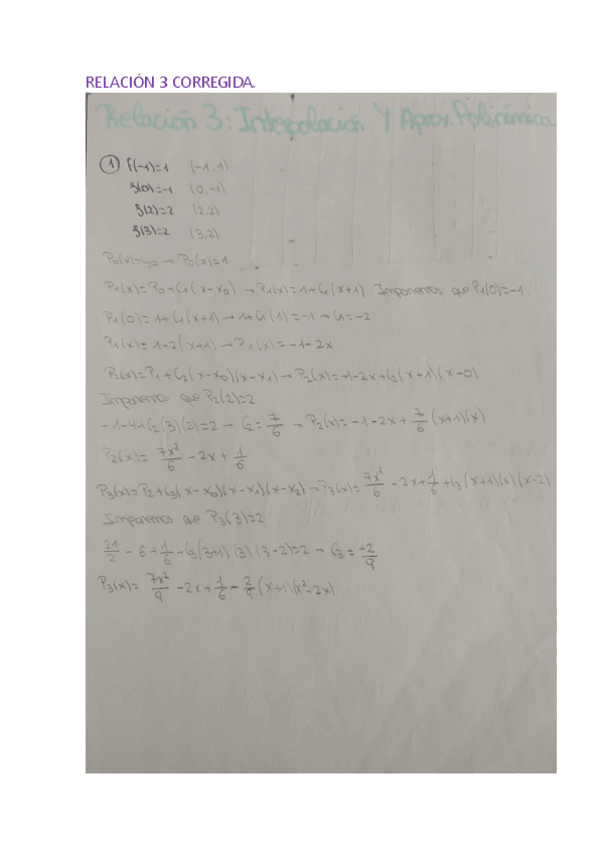 RELACIÓN 3 CORREGIDA.
Relación 3: Interpolación Y Aprox. Polinómica
① f(-1)=1 (-1,1)
f(0)=-1 (0,-1)
f(2)=2 (2,2)
f(3)=2 (3,2)
P₀(x)=y₀ → P₀(x)=1
P₁(x)=P₀+C₁(x-x₀) → P₁(x)=1+C₁(x+1) Imponemos que P₁(0)=-1
P₁(0)=1+C₁(x+1) → 1+C₁(1)=-1 → C₁=-2
P₁(x)=1-2(x+1) → P₁(x)=-1-2x
P₂(x)=P₁+C₂(x-x₀)(x-x₁) → P₂(x)=-1-2x+C₂(x+1)(x-0)
Imponemos que P₂(2)=2
-1-4+C₂(3)(2)=2 → C₂=7/6 → P₂(x)=-1-2x+7/6(x+1)(x)
P₂(x)=7x²/6-2x+1/6
P₃(x)=P₂+C₃(x-x₀)(x-x₁)(x-x₂) → P₃(x)=7x²/6-2x+1/6+C₃(x+1)(x)(x-2)
Imponemos que P₃(3)=2
21/2-6+1/6+C₃(3+1)(3)(3-2)=2 → C₃=-2/9
P₃(x)=7x²/9-2x+1/6-2/9(x+1)(x²-2x)